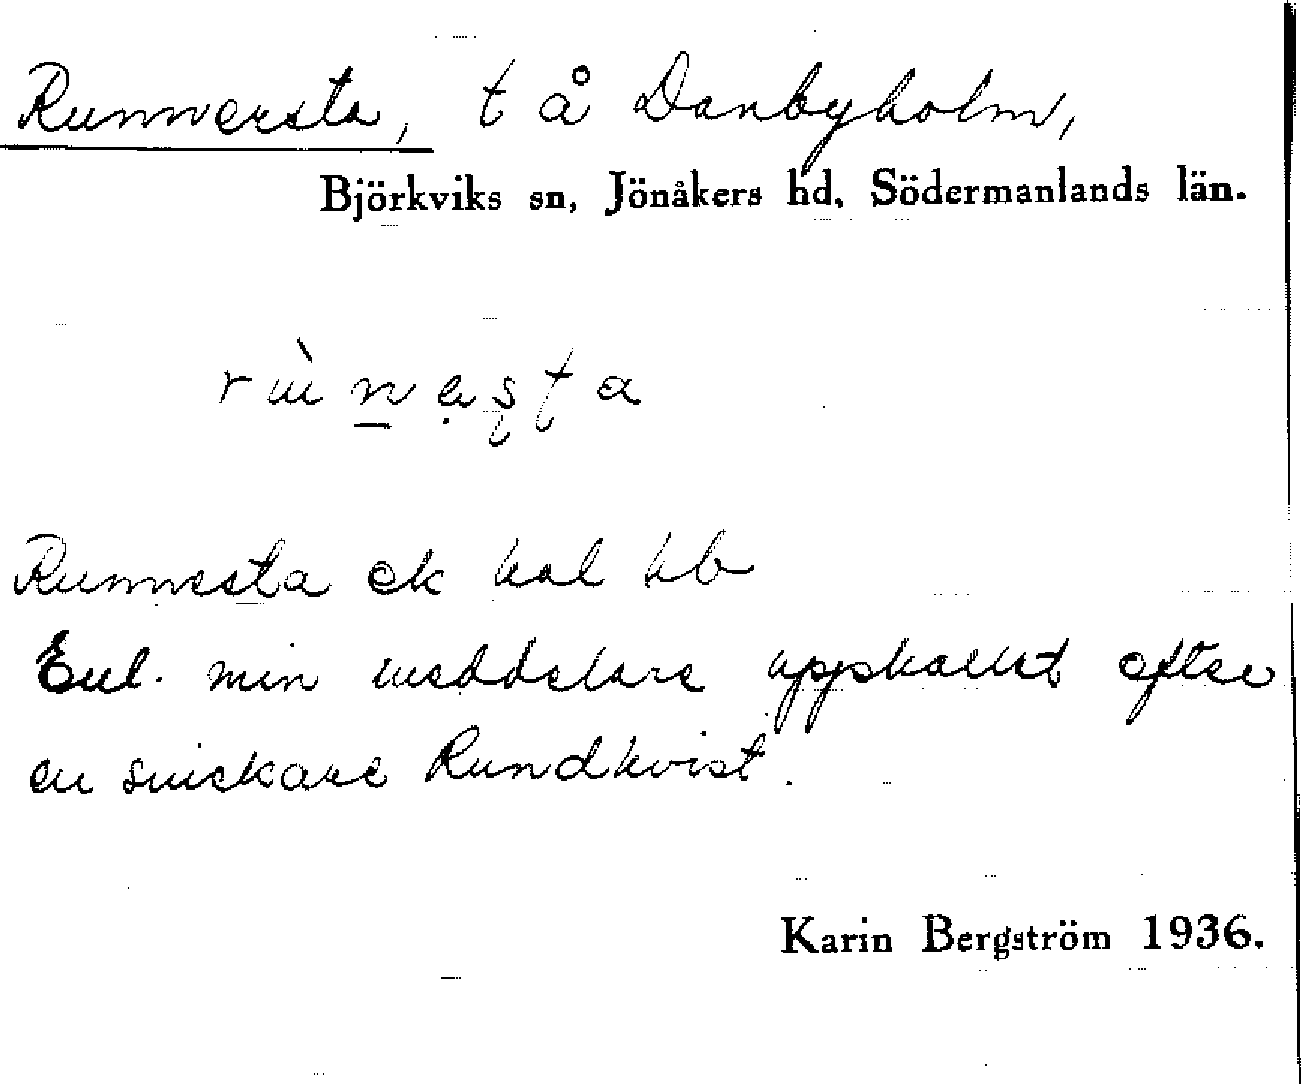 Runnersta, t å Danbyholm,
Björkviks sn, Jönåkers hd, Södermanlands län.
Runnesta ek bal hb
Enl. min meddelare uppkallat efter
en snickare Rundkvist.
Karin Bergström 1936.